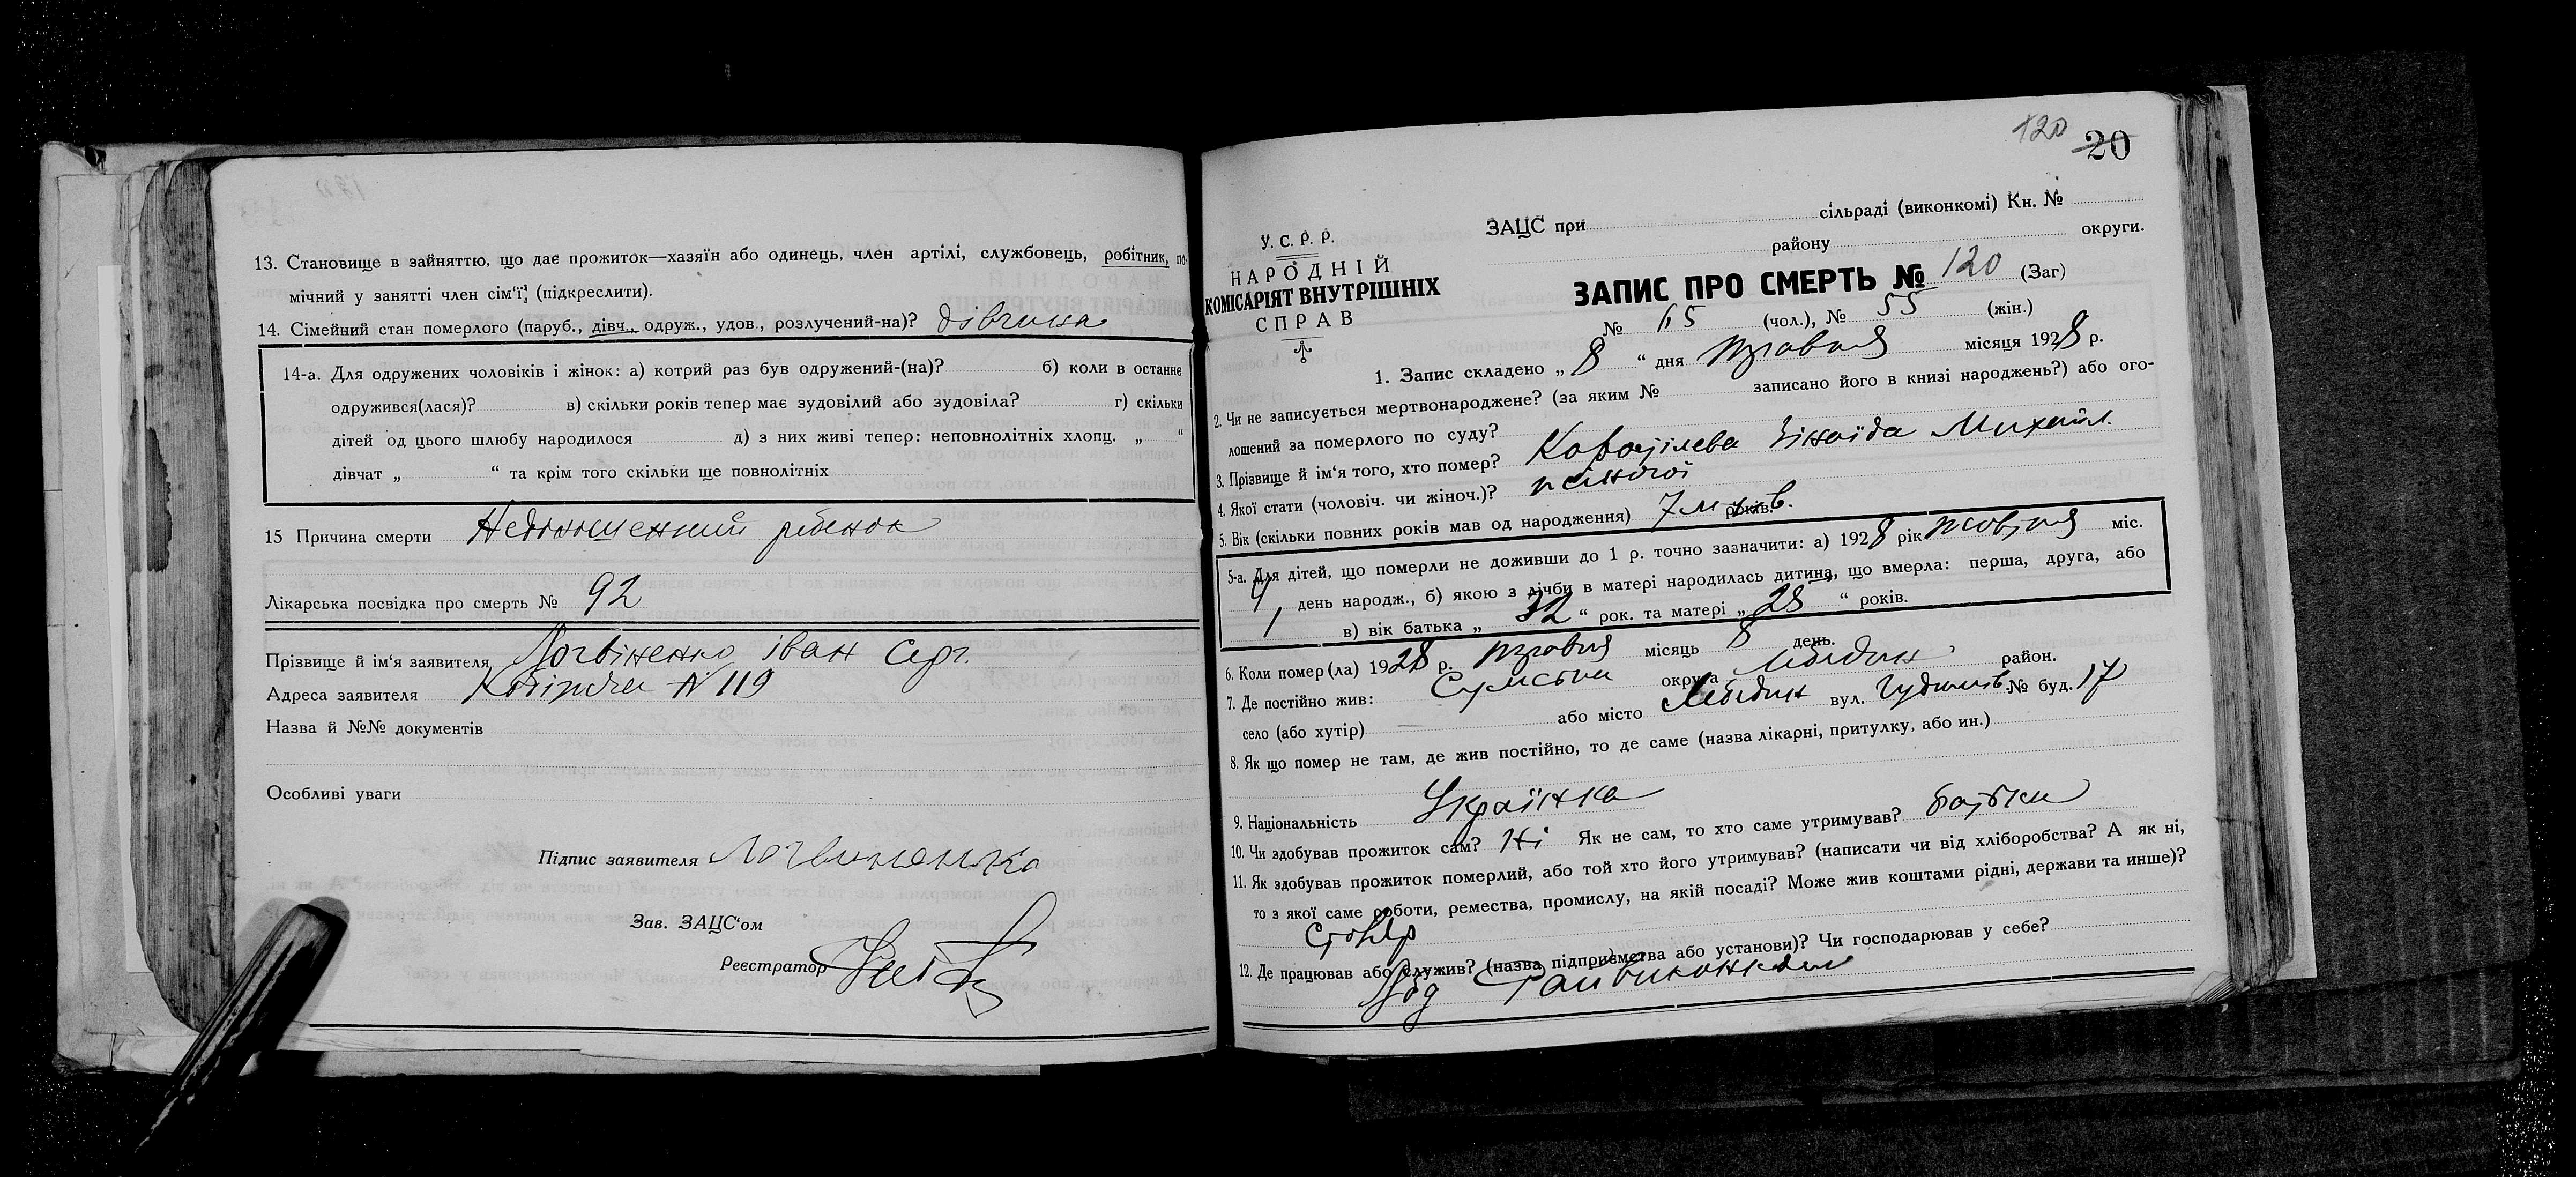 13. Становище в зайняттю, що дає прожиток—хазяїн або одинець, член артілі, службовець, робітник, по-
мічний у занятті член сім'ї (підкреслити).
14. Сімейний стан померлого (паруб., дівч., одруж., удов., розлучений-на)? дівчина
14-а. Для одружених чоловіків і жінок: а) котрий раз був одружений-(на)? б) коли в останнє
одружився(лася)? в) скільки років тепер має зудовілий або зудовіла? г) скільки
дітей од цього шлюбу народилося д) з них живі тепер: неповнолітніх хлопц. „ “
дівчат „ “ та крім того скільки ще повнолітніх
15 Причина смерти Недоношений рібенок
Лікарська посвідка про смерть № 92
Прізвище й ім'я заявителя Логвіненко Іван Серг.
Адреса заявителя № 119
Назва й №№ документів
Особливі уваги
Підпис заявителя Логвиненко
Зав. ЗАЦС'ом
Реєстратор
120 20
У. С. Р. Р.
НАРОДНІЙ
КОМІСАРІЯТ ВНУТРІШНІХ
СПРАВ
ЗАЦС при сільраді (виконкомі) Кн. №
району округи.
ЗАПИС ПРО СМЕРТЬ № 120 (Заг)
№ 65 (чол.), № 55 (жін.)
1. Запис складено „ 8 “ дня травня місяця 1928 р.
2. Чи не записується мертвонароджене? (за яким № записано його в книзі народжень?) або ого-
лошений за померлого по суду?
3. Прізвище й ім'я того, хто помер? Зінаїда Михайл.
4. Якої стати (чоловіч. чи жіноч.)? жіночої
5. Вік (скільки повних років мав од народження) 7 років.
5-а. Для дітей, що померли не доживши до 1 р. точно зазначити: а) 1928 рік жовтня міс.
день народж., б) якою з лічби в матері народилась дитина, що вмерла: перша, друга, або
1 в) вік батька „ 32 “ рок. та матері „ 28 “ років.
6. Коли помер(ла) 1928 р. травня місяць 8 день.
7. Де постійно жив: Сумської округа Лебедин район.
село (або хутір) або місто Лебедин вул. № буд. 17
8. Як що помер не там, де жив постійно, то де саме (назва лікарні, притулку, або ин.)
9. Національність Українка
10. Чи здобував прожиток сам? Ні Як не сам, то хто саме утримував? батьки
11. Як здобував прожиток померлий, або той хто його утримував? (написати чи від хліборобства? А як ні,
то з якої саме роботи, ремества, промислу, на якій посаді? Може жив коштами рідні, держави та инше)?
Столяр
12. Де працював або служив? (назва підприємства або установи)? Чи господарював у себе?
Райвиконком